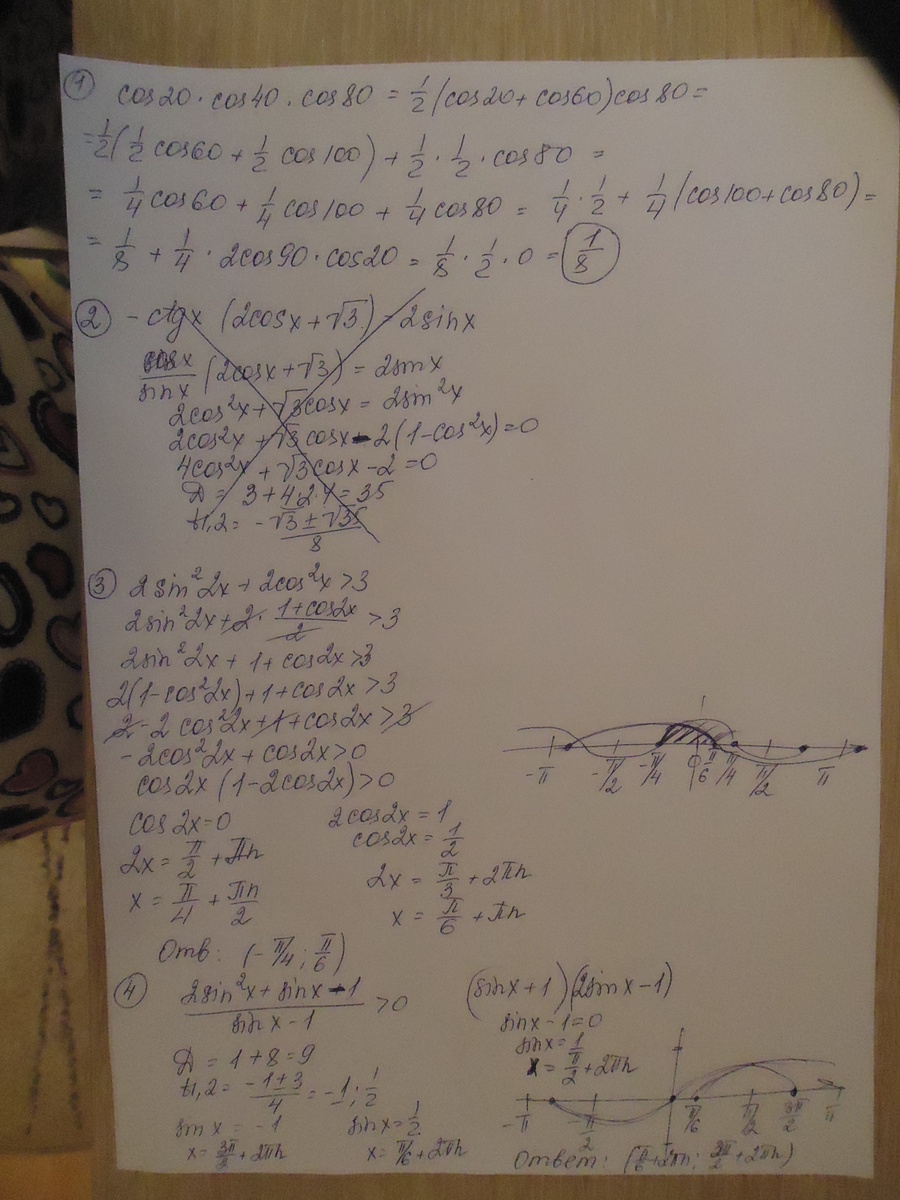 1 cos20 · cos40 · cos80 = 1/2 (cos20 + cos60) cos80 =
= 1/2 (1/2 cos60 + 1/2 cos100) + 1/2 · 1/2 · cos80 =
= 1/4 cos60 + 1/4 cos100 + 1/4 cos80 = 1/4 · 1/2 + 1/4 (cos100 + cos80) =
= 1/8 + 1/4 · 2cos90 · cos20 = 1/8 · 1/2 · 0 = 1/8
2 - ctgx (2cosx + √3) = 2sinx
cosx/sinx (2cosx + √3) = 2sinx
2cos²x + √3cosx = 2sin²x
2cos²x + √3 cosx - 2(1 - cos²x) = 0
4cos²x + √3 cosx - 2 = 0
Д = 3 + 4·2·4 = 35
t1,2 = -√3 ± √35 / 8
3 2sin²2x + 2cos²x > 3
2sin²2x + 2 · 1+cos2x/2 > 3
2sin²2x + 1 + cos2x > 3
2(1 - cos²2x) + 1 + cos2x > 3
2 - 2cos²2x + 1 + cos2x > 3
- 2cos²2x + cos2x > 0
cos2x (1 - 2cos2x) > 0
-π -π/2 -π/4 0 π/6 π/4 π/2 π
cos2x = 0 2cos2x = 1
cos2x = 1/2
2x = π/2 + πn 2x = π/3 + 2πn
x = π/4 + πn/2 x = π/6 + πn
Отв: (-π/4; π/6)
4 2sin²x + sinx - 1 / sinx - 1 > 0 (sinx + 1)(2sinx - 1)
sinx - 1 = 0
sinx = 1
x = π/2 + 2πn
Д = 1 + 8 = 9
t1,2 = -1 ± 3 / 4 = -1; 1/2
sinx = -1 sinx = 1/2
x = 3π/2 + 2πn x = π/6 + 2πn
-π -π/2 π/6 π/2 3π/2 π
Ответ: (π/6 + 2πn; 3π/2 + 2πn)